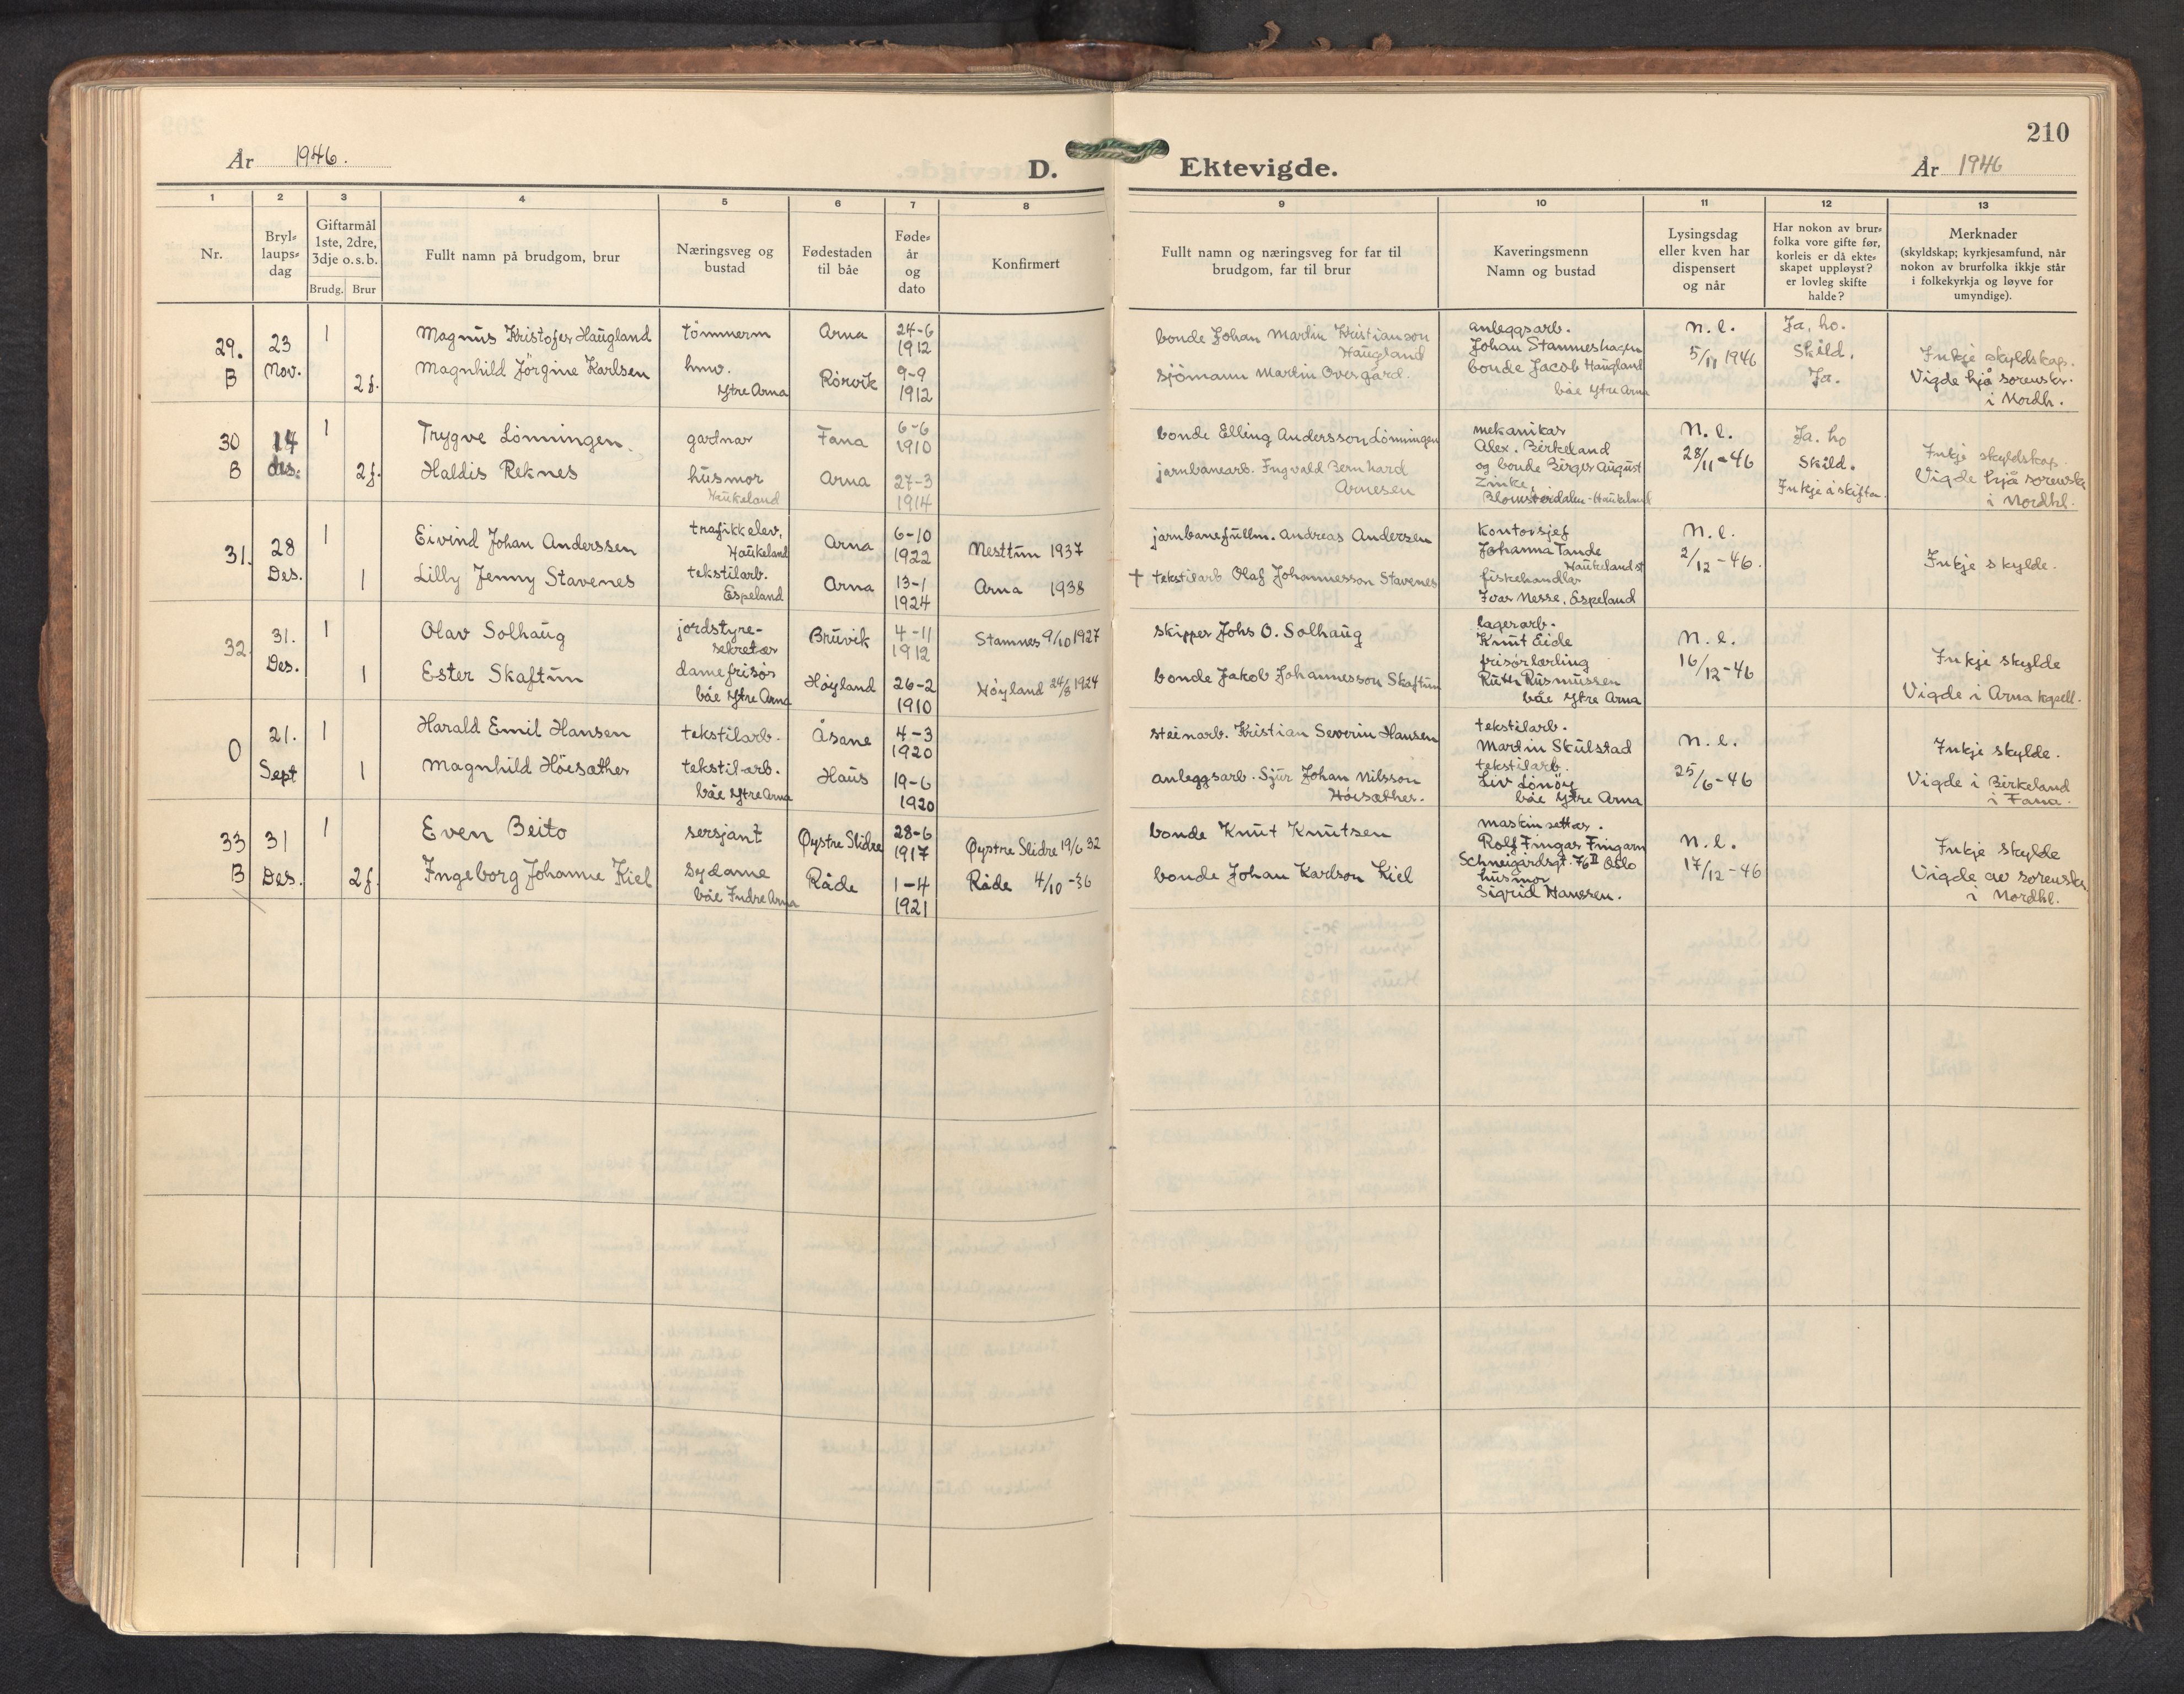 210
År 1946.
D. Ektevigde.
År 1946
1 2 3 4 5 6 7 8 9 10 11 12 13
Nr.
Bryl-
laups-
dag
Giftarmål
1ste, 2dre,
3dje o.s.b.
Brudg. Brur
Fullt namn på brudgom, brur
Næringsveg og
bustad
Fødestaden
til båe
Føde-
år
og
dato
Konfirmert
Fullt namn og næringsveg for far til
brudgom, far til brur
Kaveringsmenn
Namn og bustad
Lysingsdag
eller kven har
dispensert
og når
Har nokon av brur-
folka vore gifte før,
korleis er då ekte-
skapet uppløyst?
er lovleg skifte
halde?
Merknader
(skyldskap; kyrkjesamfund, når
nokon av brurfolka ikkje står
i folkekyrkja og løyve for
umyndige).
29.
B
23
Nov.
1
2f.
Magnus Kristofer Haugland
Magnhild Jörgine Karlsen
tömmerm
hmv.
Ytre Arna
Arna
Rörvik
24-6
1912
9-9
1912
bonde Johan Martin Kristianson
Haugland
sjömann Martin Overgård.
anleggsarb.
Johan Stammeshagen
bonde Jacob Haugland
båe Ytre Arna
n. l.
5/11 1946
Ja, ho.
Skild.
Ja.
Inkje skyldskap.
Vigde hjå sorenskr.
i Nordh.
30
B
14
des.
1
2f.
Trygve Lönningen
Haldis Reknes
gartnar
husmor
Haukeland
Fana
Arna
6-6
1910
27-3
1914
bonde Elling Andersson Lönningen
jarnbanearb. Ingvald Bernhard
Arnesen
mekanikar
Alex. Birkeland
og bonde Birger August
Zinke,
Blomsterdalen-Haukeland
n. l.
28/11-46
Ja. ho
Skild.
Inkje å skifta.
Inkje skyldskap.
Vigde hjå sorenskr
i Nordhl.
31.
28
Des.
1
1
Eivind Johan Anderssen
Lilly Jenny Stavenes
trafikkelev,
Haukeland
tekstilarb.
Espeland
Arna
Arna
6-10
1922
13-1
1924
Nesttun 1937
Arna 1938
jarnbanefullm. Andreas Andersen
† tekstilarb Olaf Johannesson Stavenes
kontorsjef
Johanna Tande
Haukeland st
fiskehandlar
Ivar Nesse, Espeland
n. l.
2/12-46.
Inkje skylde.
32.
31.
Des.
1
1
Olav Solhaug
Ester Skaftun
jordstyre-
sekretær
damefrisör
båe Ytre Arna
Bruvik
Höyland
4-11
1912
26-2
1910
Stamnes 9/10 1927
Höyland 24/8 1924
skipper Johs O. Solhaug
bonde Jakob Johannesson Skaftun
lagerarb.
Knut Eide
frisörlærling
Ruth Rusmussen
båe Ytre Arna
n. l.
16/12-46
Inkje skylde
Vigde i Arna kapell.
0
21.
Sept
1
1
Harald Emil Hansen
Magnhild Höisæther
tekstilarb.
tekstilarb.
båe Ytre Arna
Åsane
Haus
4-3
1920
19-6
1920
steinarb. Kristian Severin Hansen
anleggsarb. Sjur Johan Nilsson
Höisæther.
tekstilarb.
Martin Skulstad
tekstilarb.
Liv Lönöy
båe Ytre Arna
n. l.
25/6-46
Inkje skylde.
Vigde i Birkeland
i Fana.
33
B
31
Des.
1
2f.
Even Beito
Ingeborg Johanne Kiel
sersjant
sydame
båe Indre Arna
Øystre Slidre
Råde
28-6
1917
1-4
1921
Øystre Slidre 19/6 32
Råde 4/10-36
bonde Knut Knutsen
bonde Johan Karlson Kiel
maskinsettar.
Rolf Fingar Fingarn
Schweigårdsgt. 76 II Oslo
husmor
Sigrid Hanssen.
n. l.
17/12-46
Inkje skylde
Vigde av sorenskr.
i Nordhl.